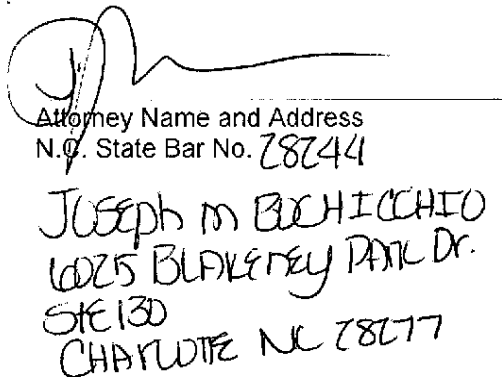 Attorney Name and Address
N.C. State Bar No. 28244
JOSEPH M BOCHICCHIO
6025 BLAKENEY PARK Dr.
STE 130
CHARLOTTE NC 28277